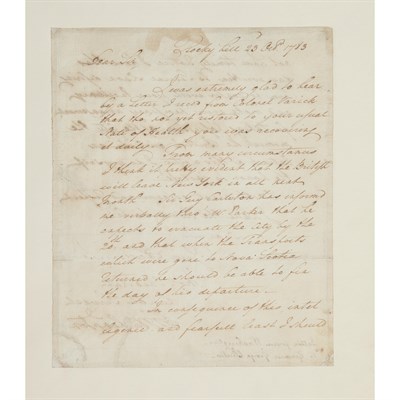 Rocky hill 23 Oct 1783
Dear Sir
I was extremely glad to hear
by a letter I recd from Colonel Varick
that tho not yet restored to your usual
State of Health you was recovering
it daily.
From many circumstances
I think it pretty evident that the British
will leave New York in all next
Month. Sir Guy Carleton has informed
me verbally thro Mr Parker that he
expects to evacuate the City by the
20th and that when the Transports
which were gone to Nova Scotia
returned he should be able to fix
the day of his departure.
In consequence of this intel
ligence and fearful least I should